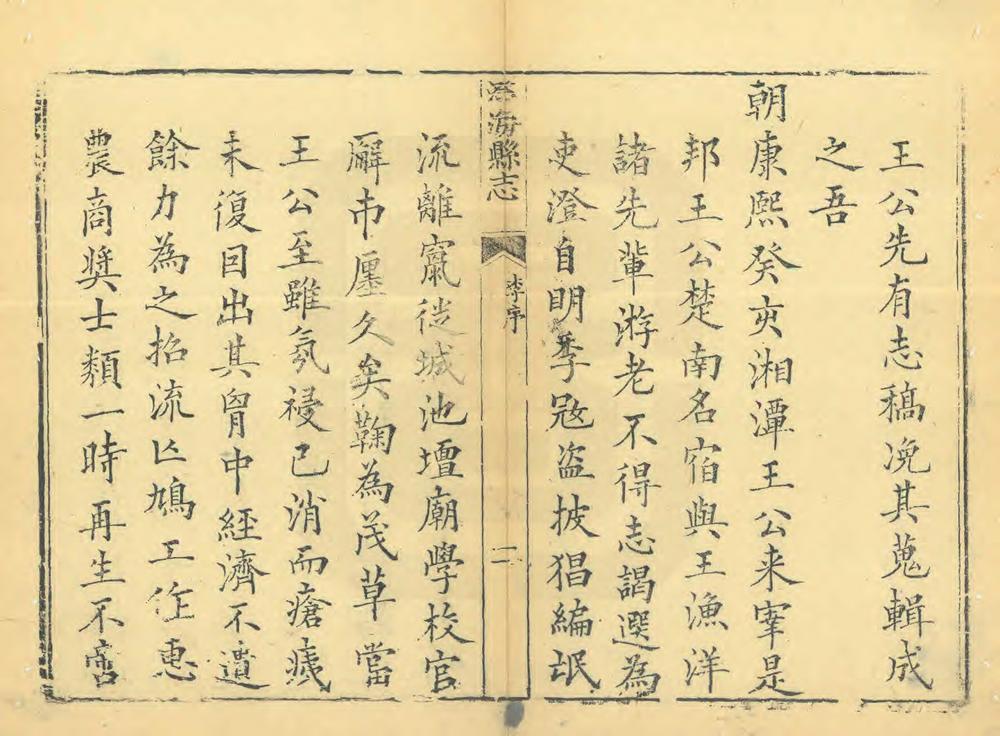 王公先有志稿凂其蒐輯成
之吾
朝康熙癸亥湘潭王公来宰是
邦王公楚南名宿與王漁洋
諸先輩游老不得志謁選為
吏澄自明季冦盗披猖編氓
海縣志
李序
二
流離竄徙城池壇廟學校官
廨市廛久矣鞠為茂草當
王公至雖氛祲已消而瘡痍
未復因出其胷中経濟不遺
餘力為之招流亾鳩工作惠
農商奬士類一時再生不啻